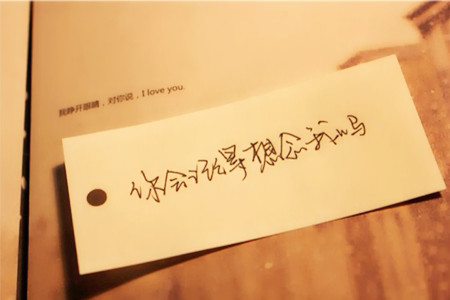 我睁开眼睛，对你说，I love you.
你会经常想念我吗